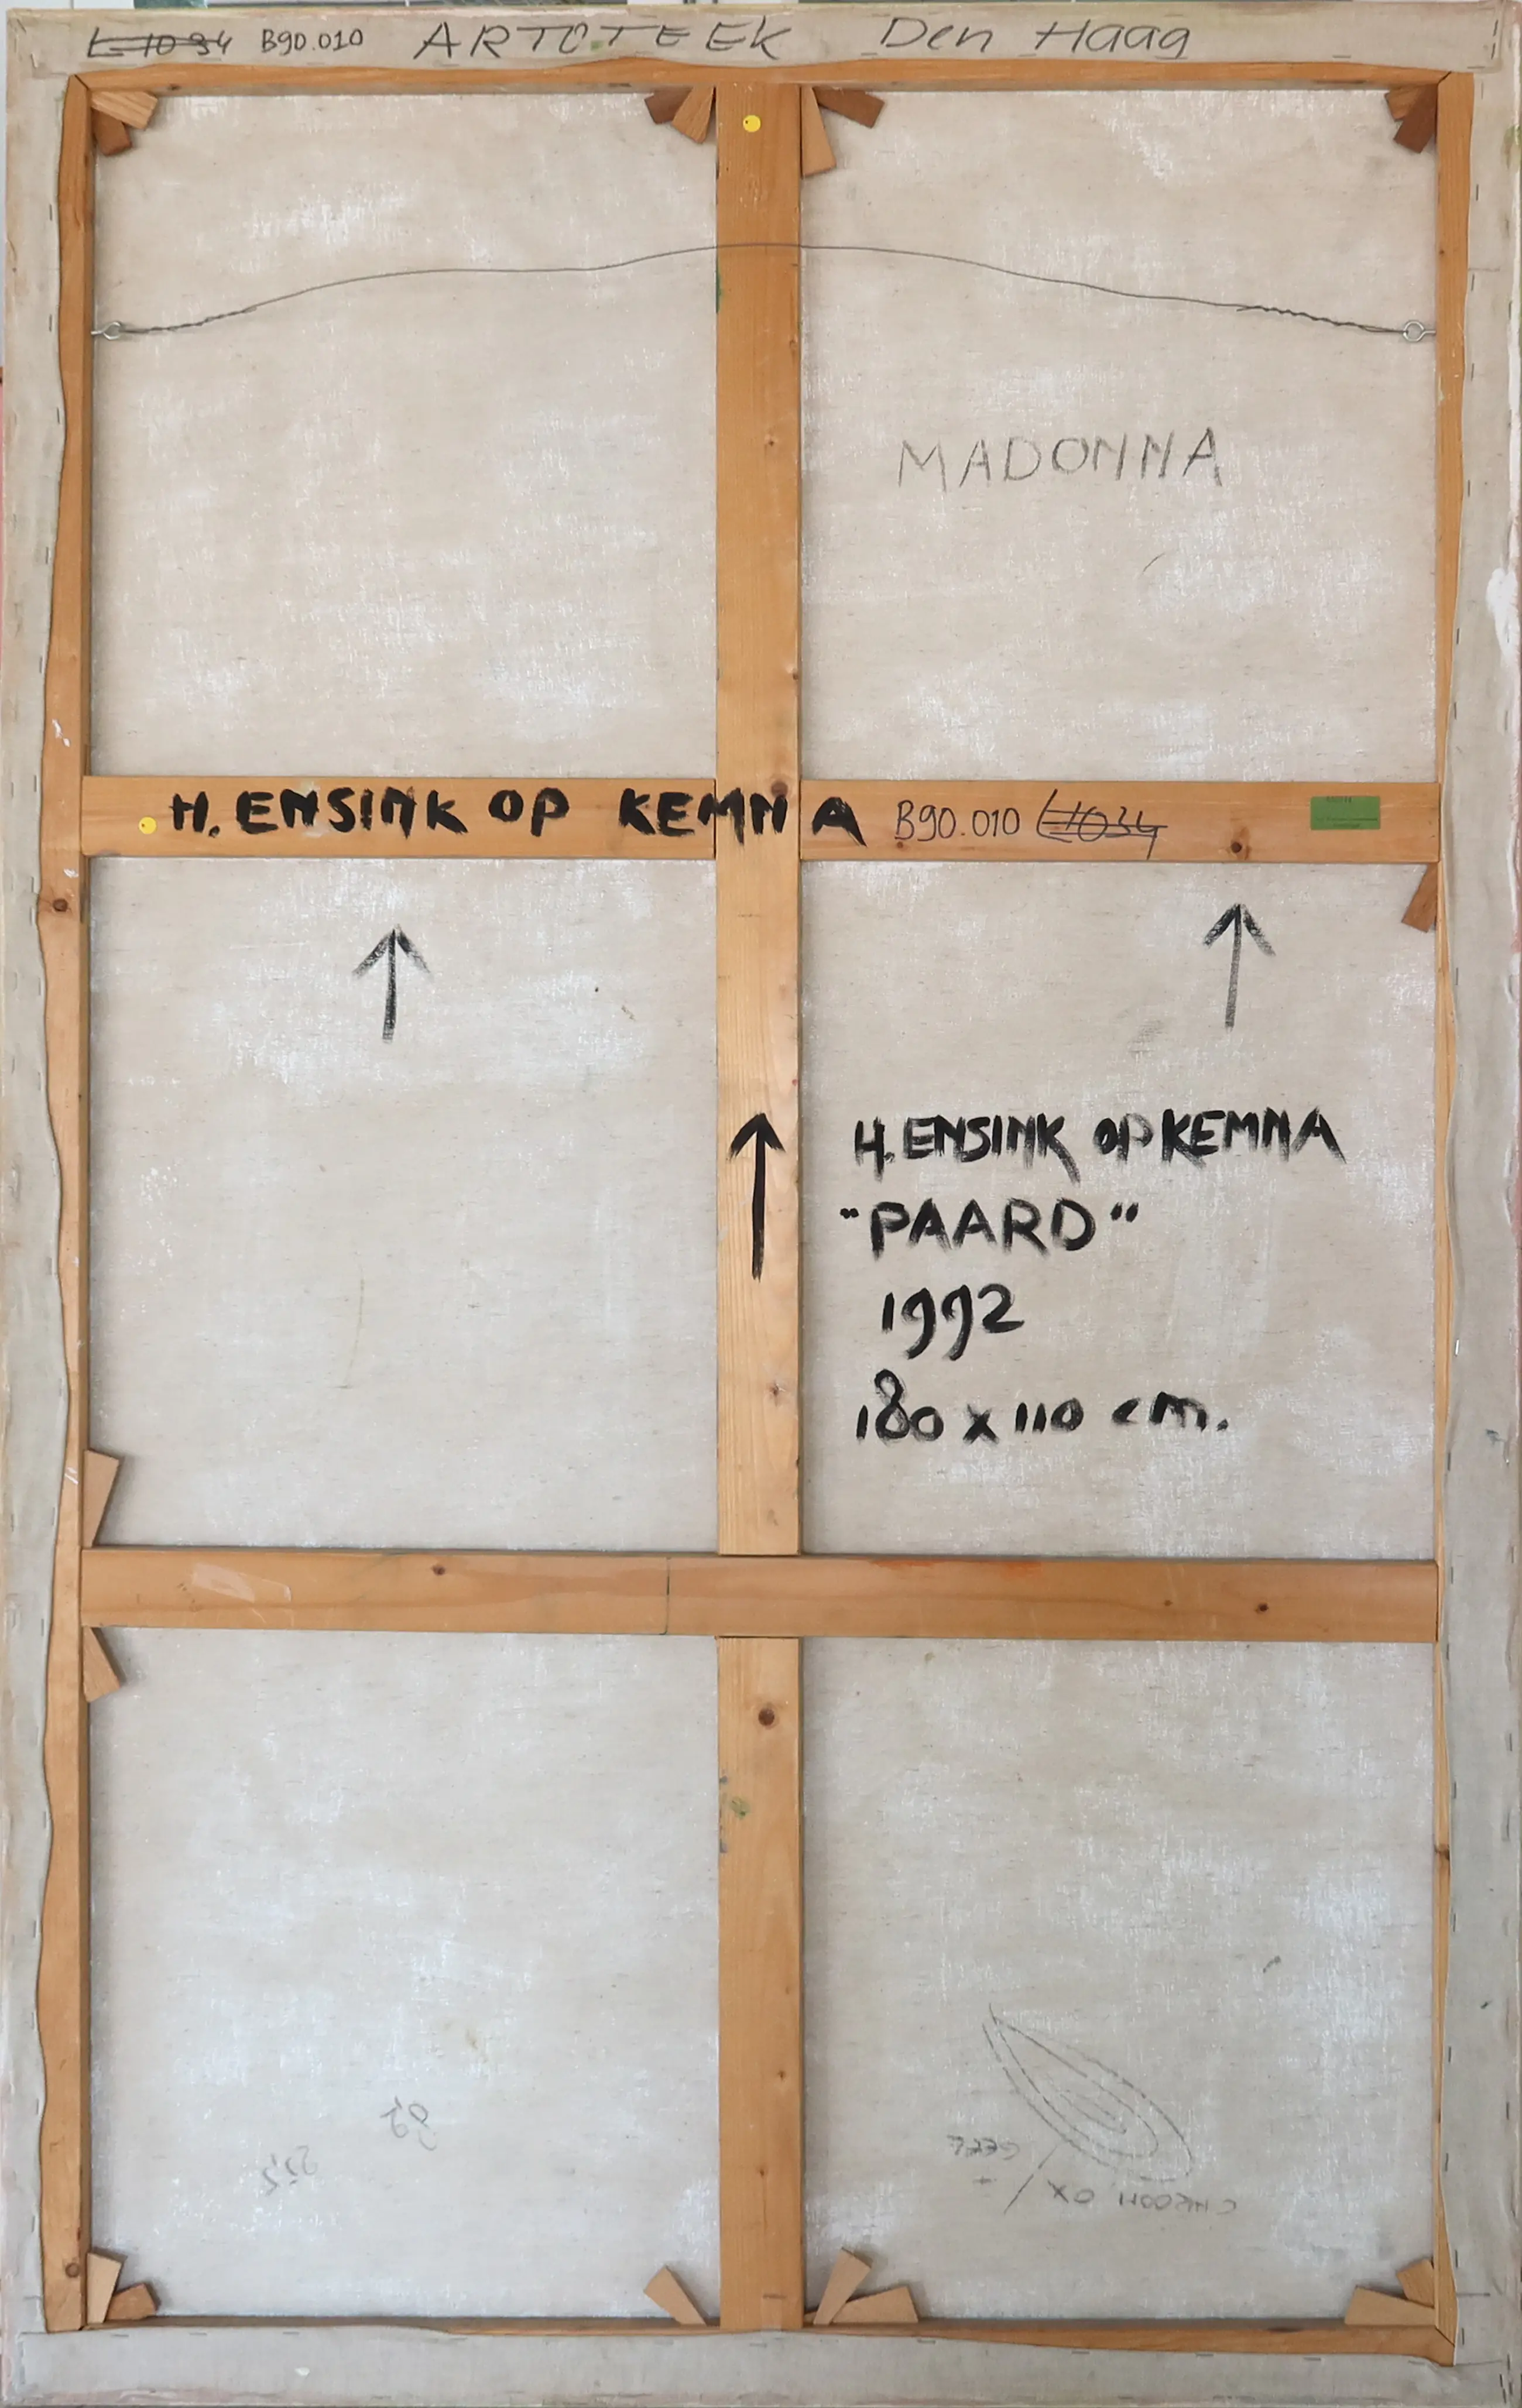 L1034 B90.010 ARTOTEEK Den Haag
MADONNA
H. ENSINK OP KEMNA B90.010 L1034
H. ENSINK OP KEMNA
"PAARD"
1992
180 x 110 cm.
GEEL
+
CHROOM OX